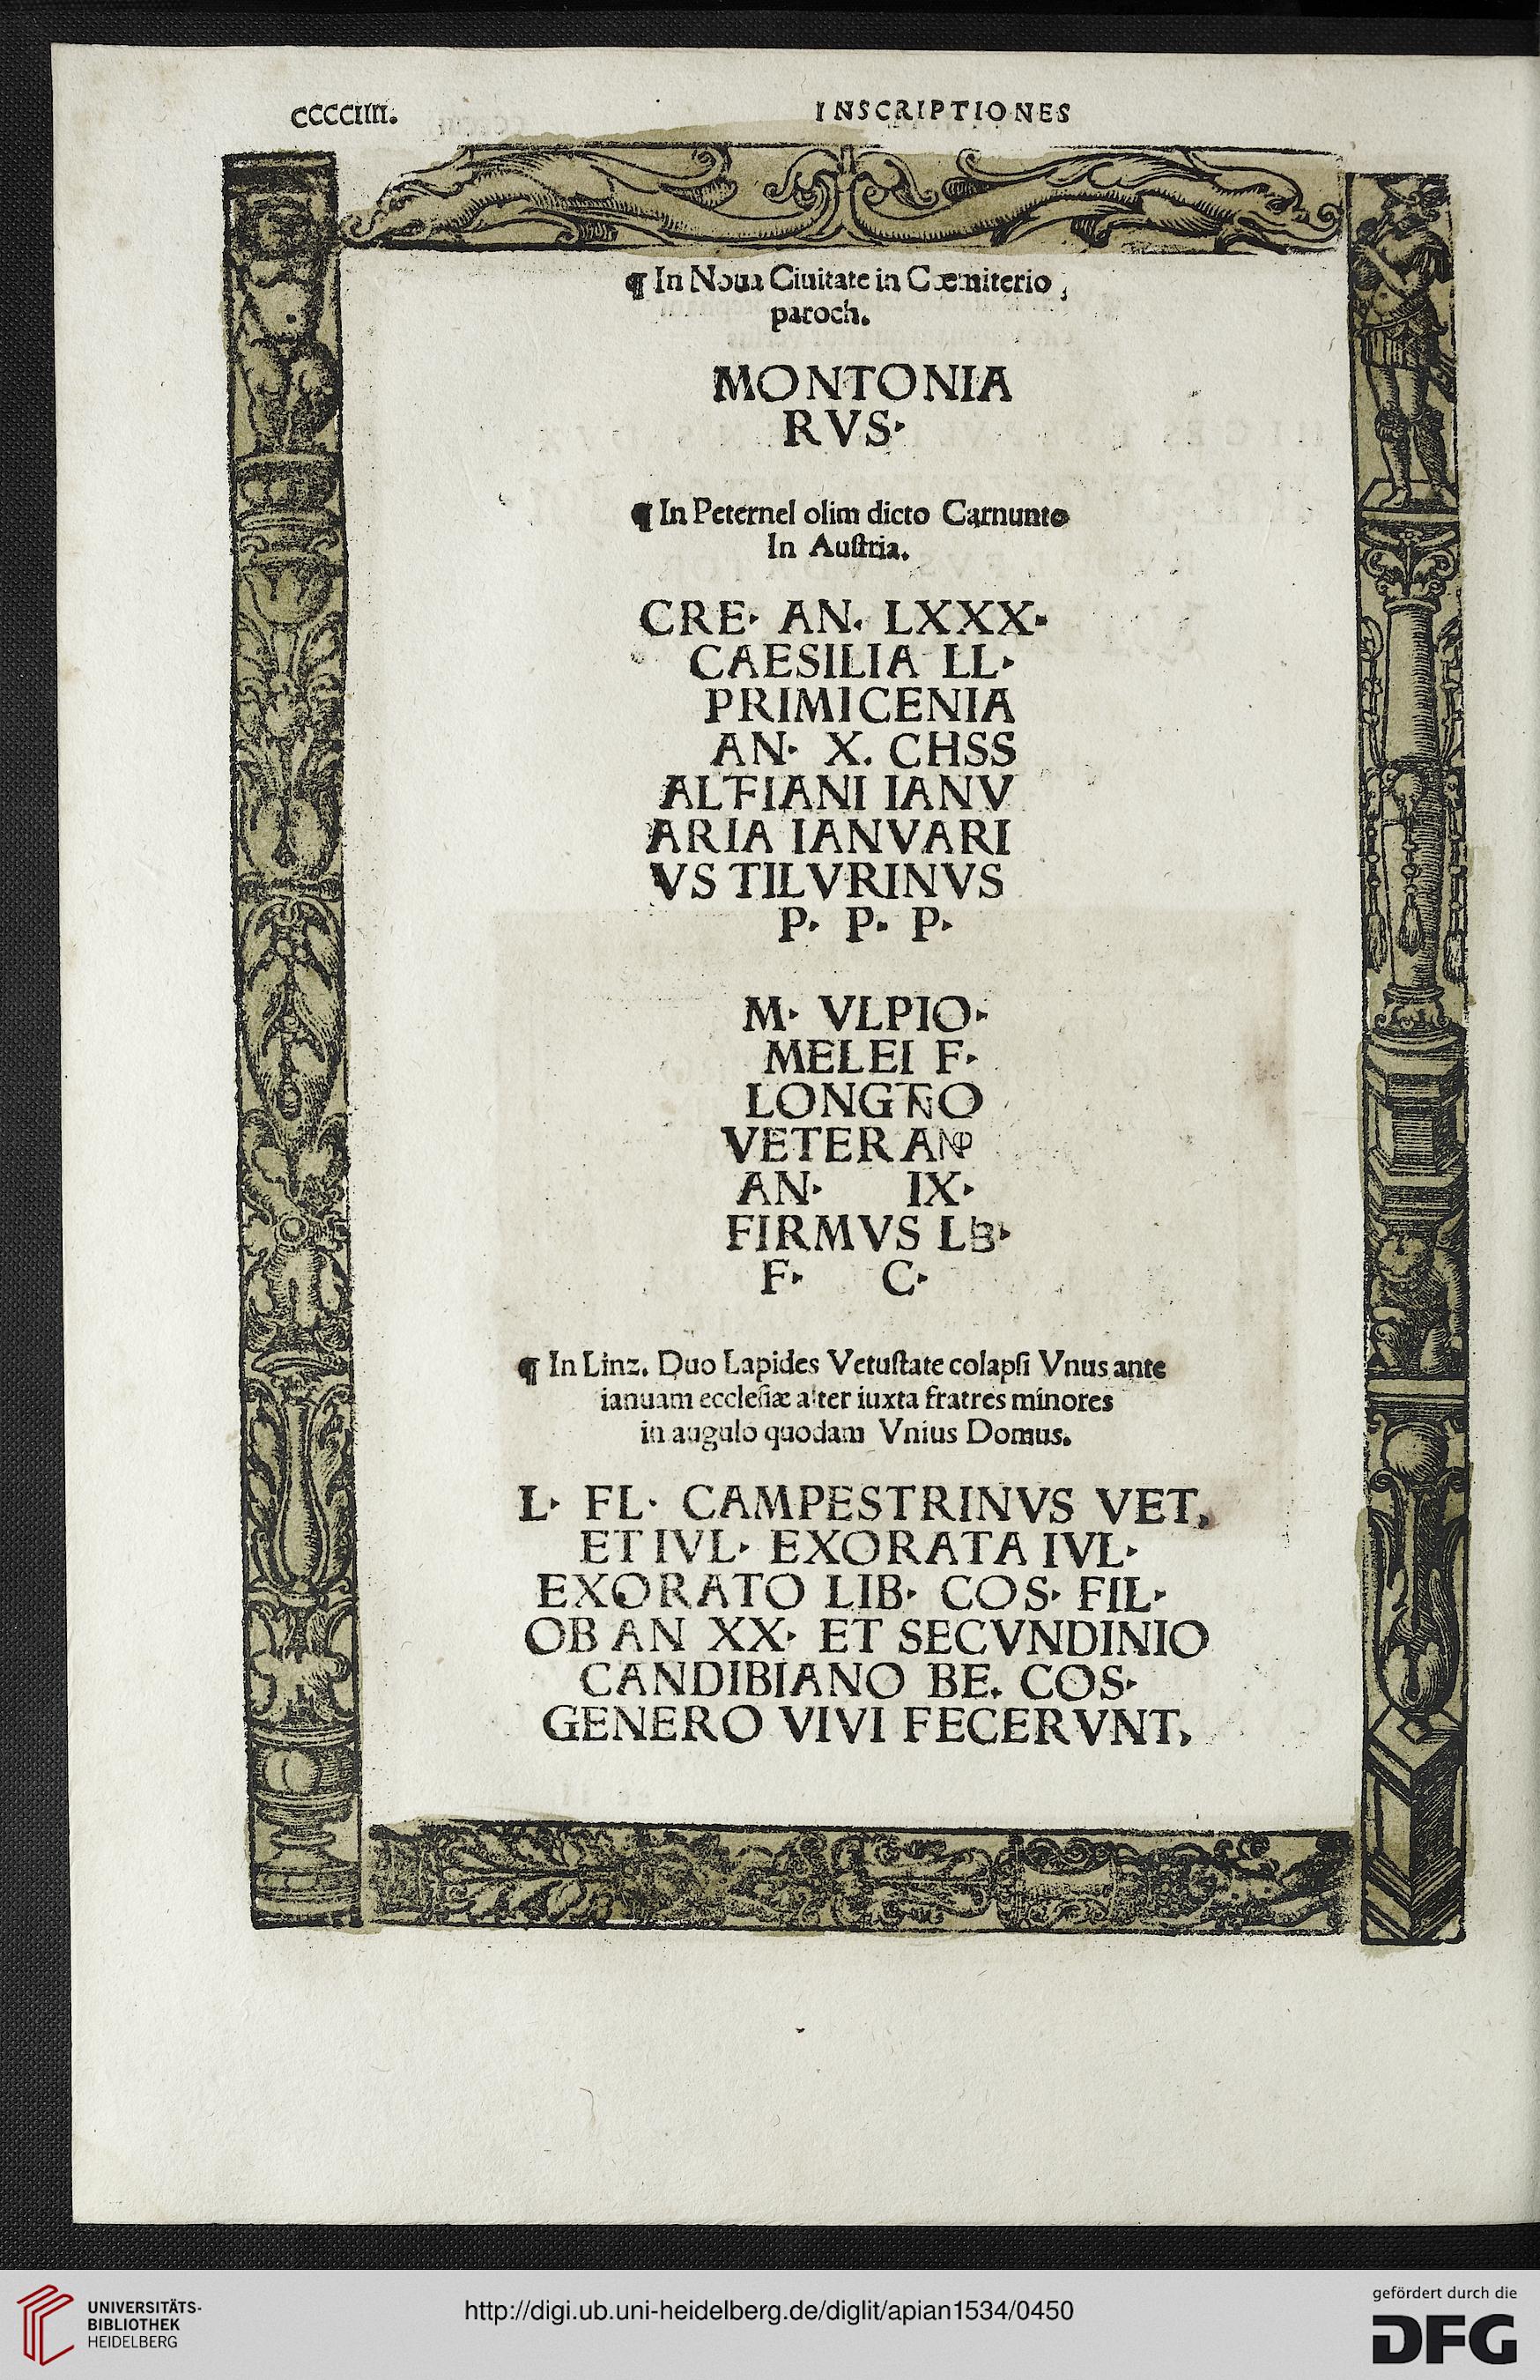 CCCCIIII.
INSCRIPTIONES
¶ In Noua Ciuitate in Cœmiterio,
paroch.
MONTONIA
RVS·
¶ In Peternel olim dicto Carnunto
In Auſtria.
CRE· AN. LXXX·
CAESILIA LL·
PRIMICENIA
AN· X. CHSS
ALFIANI IANV
ARIA IANVARI
VS TILVRINVS
P· P· P·
M· VLPIO·
MELEI F·
VETERANO
AN· IX·
FIRMVS LIB·
F· C·
¶ In Linz. Duo Lapides Vetuſtate colapſi Vnus ante
ianuam eccleſiæ alter iuxta fratres minores
in augulo quodam Vnius Domus.
L· FL· CAMPESTRINVS VET,
ET IVL· EXORATA IVL·
EXORATO LIB· COS· FIL·
OB AN XX· ET SECVNDINIO
CANDIBIANO BE. COS·
GENERO VIVI FECERVNT,
UNIVERSITÄTS-
BIBLIOTHEK
HEIDELBERG
http://digi.ub.uni-heidelberg.de/diglit/apian1534/0450
gefördert durch die
DFG